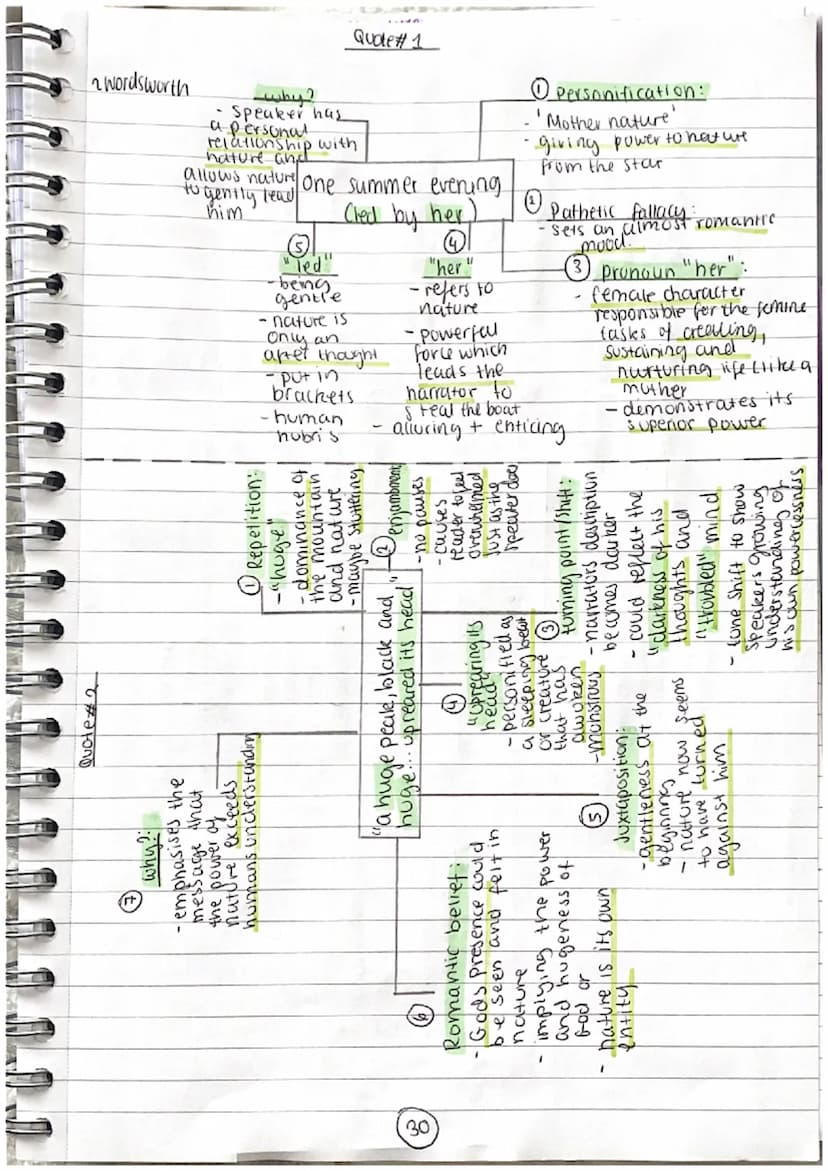 Quote# 1
~wordsworth
why?
- Speaker has
a personal
relationship with
nature and
allows nature
to gently lead
him
One summer evening
(led by her)
① Personification:
- 'Mother nature'
- giving power to nature
from the star
② Pathetic fallacy:
- sets an almost romantic
mood.
③ pronoun "her":
- female character
responsible for the femine
tasks of creating,
sustaining and
nurturing life (like a
mother
- demonstrates its
superior power
④
"her"
- refers to
nature
- powerful
force which
leads the
narrator to
steal the boat
- alluring + enticing
⑤
"led"
- being
gentle
- nature is
only an
after thought
- put in
brackets
- human
hubris
Quote# 2
"a huge peak, black and
huge... upreared its head"
① Repetition:
- "huge"
- dominance of
the mountain
and nature
- maybe stuttering
② enjambment
- no pauses
- causes
reader to feel
overwhelmed
just as the
speaker does
③
turning point/shift:
- narrators description
becomes darker
- could reflect the
"darkness of his
thoughts and
"troubled" mind
- tone shift to show
speakers growing
understanding of
his own powerlessness
④
"uprearing its
head"
- personified as
a sleeping beast
or creature
that has
awoken
- monstrous
⑤
Juxtaposition:
- gentleness at the
beginning
- nature now seems
to have turned
against him
⑥
Romantic belief:
- Gods presence could
be seen and felt in
nature
- implying the power
and hugeness of
God or
- nature is its own
entity
⑦
why?:
- emphasises the
message that
the power of
nature exceeds
humans understanding
30